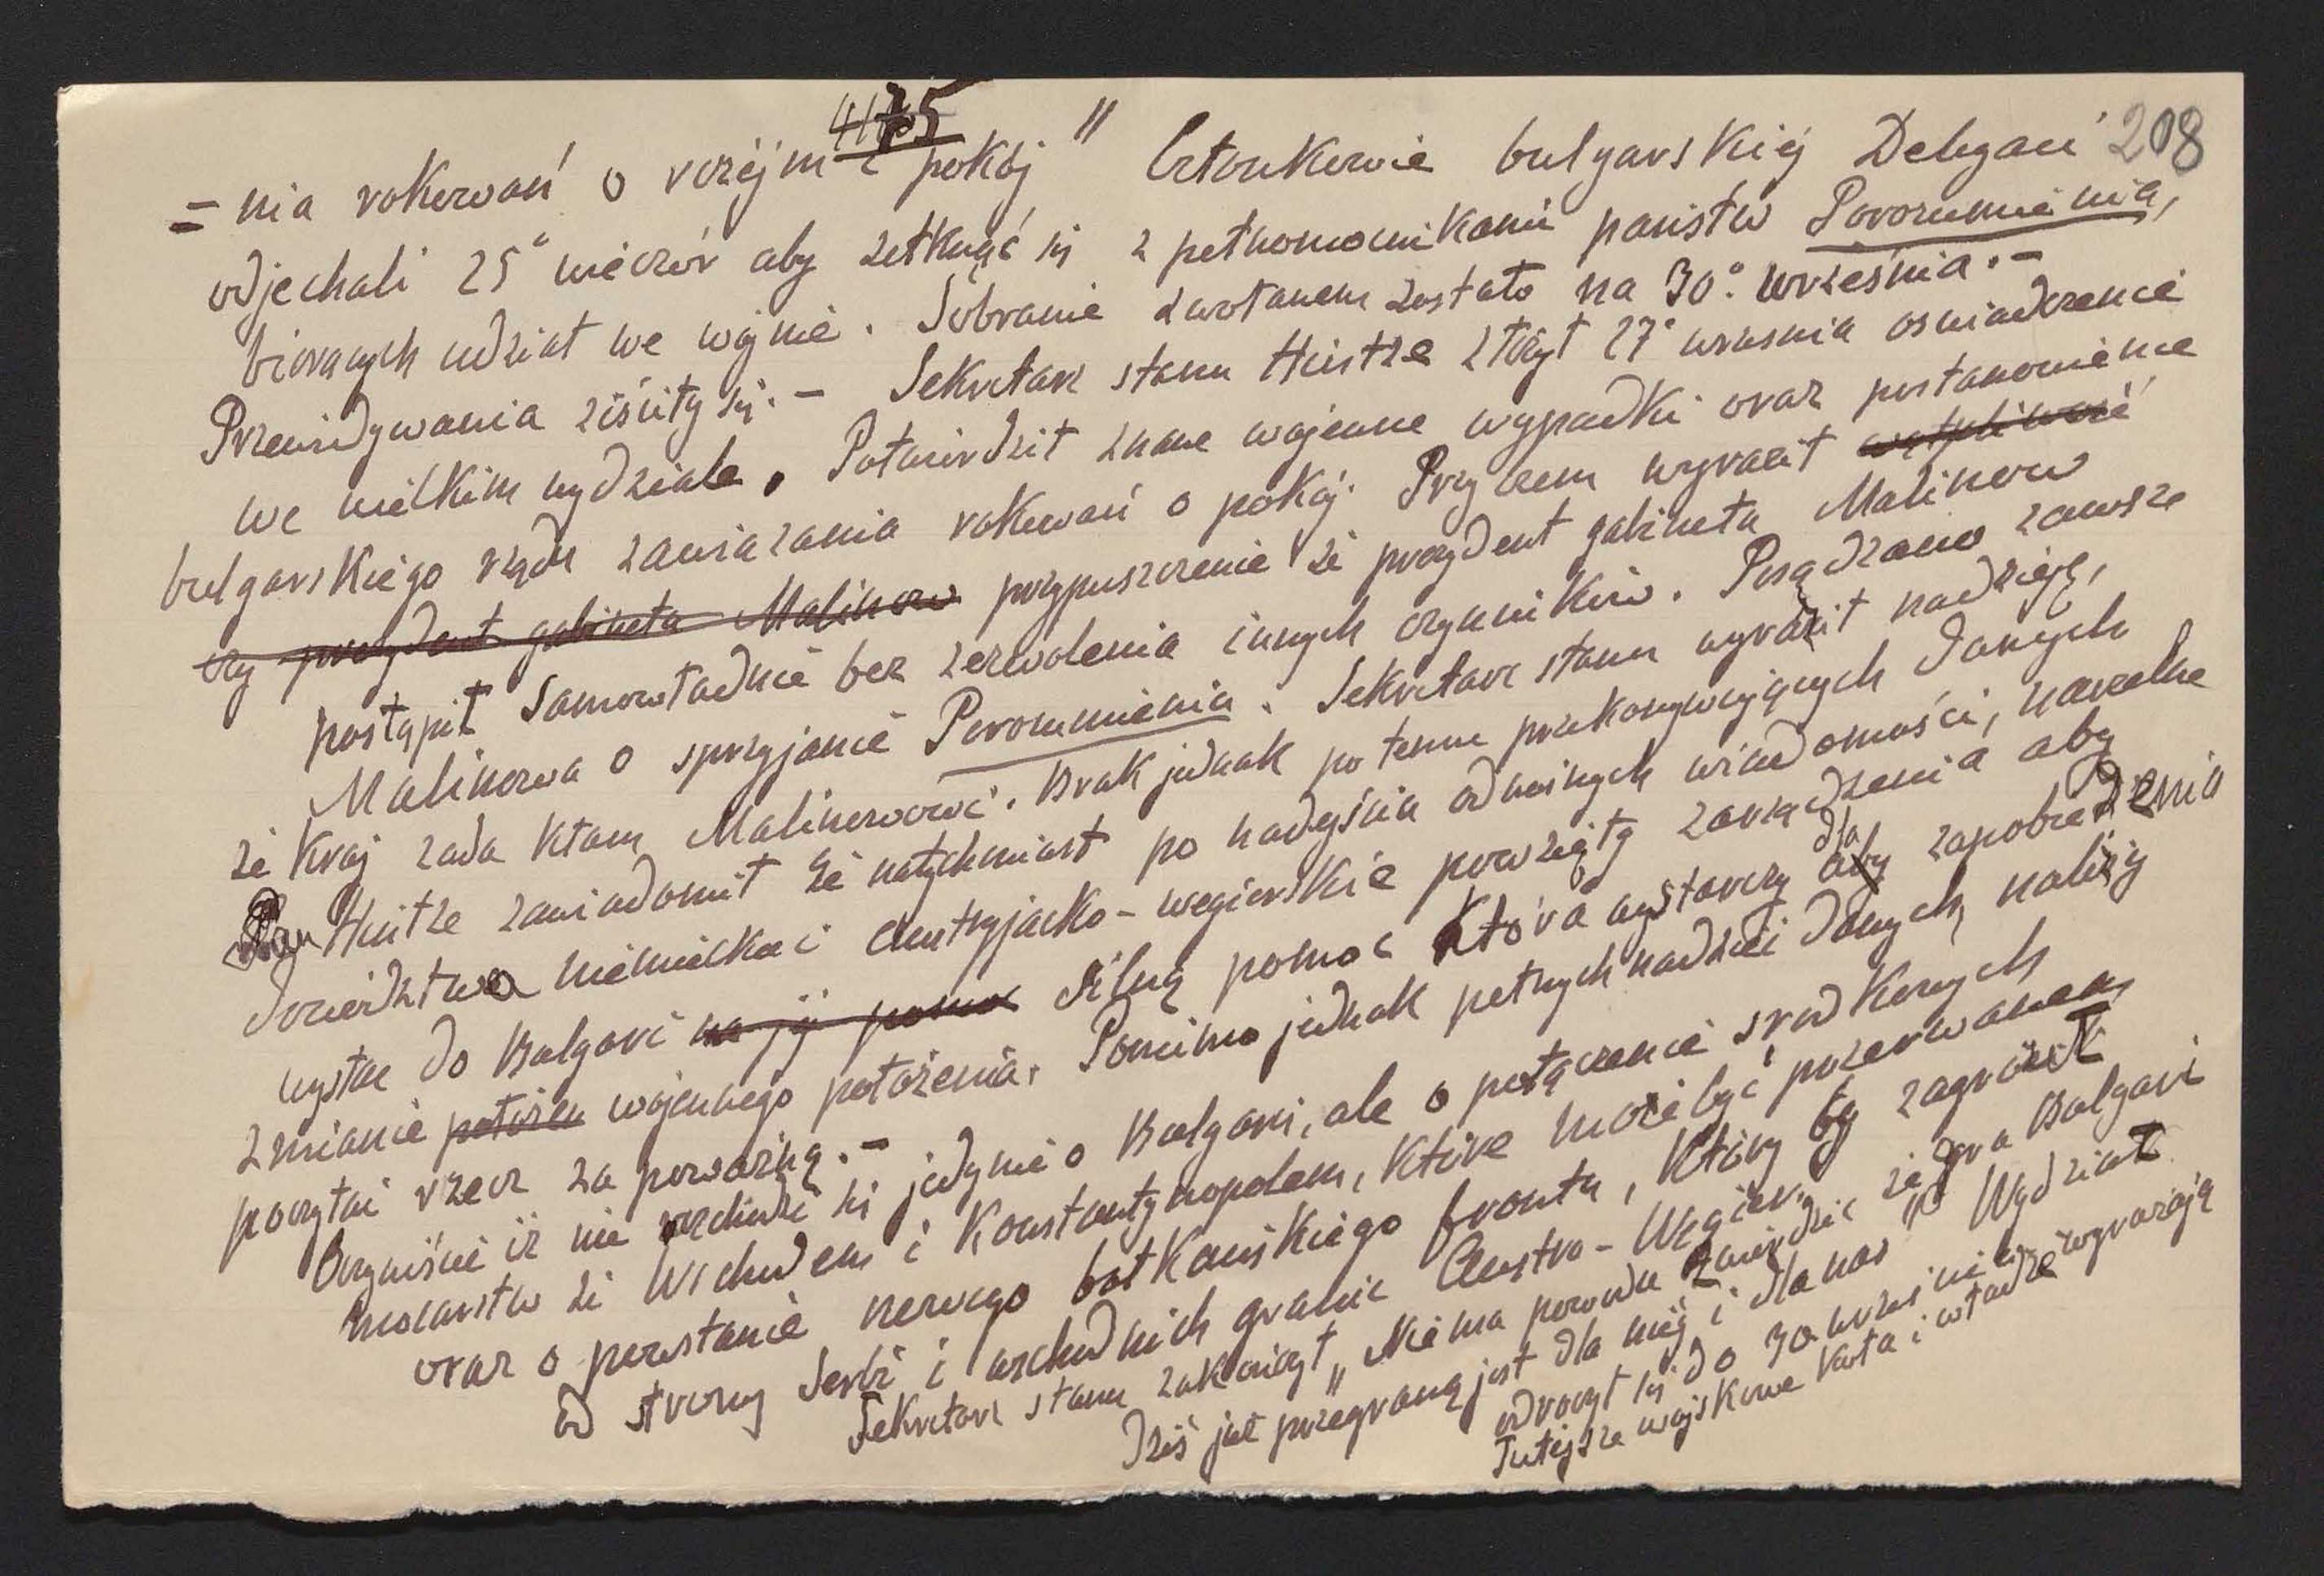 4175
208
= nia rokowań o rozéjm i pokój " Członkowie bulgarskiéj Delegaci
odjechali 25° wieczór aby zetknąć się z pełnomocnikami państw Porozumienia,
biorących udział we wojnie. Sobranie zwołanem zostało na 30° września. –
Przewidywania ziściły się. – Sekretarz stanu Hintze złożył 27° września oswiadczenie
we wielkim wydziale. Potwierdził znane wojenne wypadki oraz postanowienie
bulgarskiego rządu zawiazania rokowań o pokój. Przyczem wyraził wątpliwość
czy prezydent gabinetu Malinow przypuszczenie że prezydent gabinetu Malinow
postąpił samowładnie bez zezwolenia innych czynników. Posądzano zawsze
Malinowa o sprzyjanie Porozumienia. Sekretarz stanu wyraził nadzieję,
że Kraj zada kłam Malinowowi. Brak jednak po temu przekonywujących danych
Pan Hintze zawiadomił że natychmiast po nadejściu odnośnych wiadomości, naczelne
dowództwa niemieckie i austryjacko-wegierskie powzięły zarządzenia aby
wysłac do Bulgari na jéj pomoc silną pomoc która wystarczy aby dla zapobiedzenia
zmianie położen wojennego położenia. Pomimo jednak pełnych nadziei danych, należy
poczytac rzecz za poważną. –
Oczywiście iż nie rozchodzi się jedynie o Bulgari, ale o połączenie srodkowych
mocarstw ze Wschodem i Konstantynopolem, które może być przerwanem
oraz o powstanie nowego bałkańskiego frontu, który by zagroził
od strony Serbi i wschodnich granic Austro-Węgier.
Sekretarz stanu zakończył „Nie ma powodu twierdzic że gra Bulgari
dziś już przegraną jest dla niéj i dla nas" Wydział
odroczył się do 30 września.
Tutejsze wojskowe koła i władze wyrażają